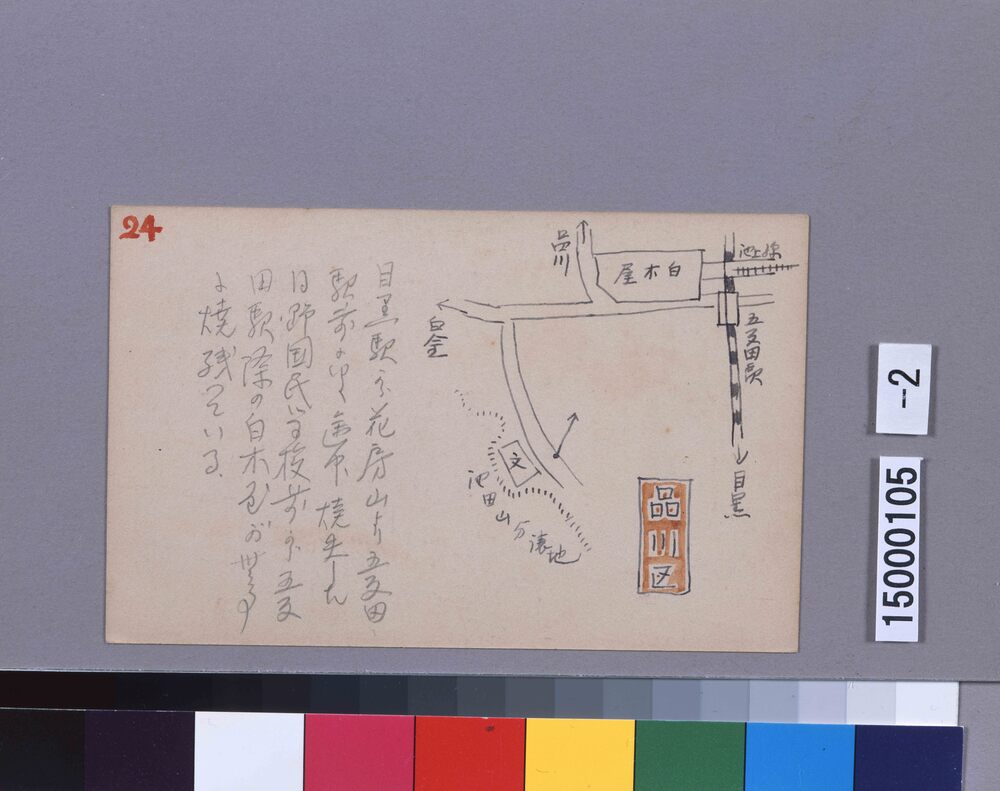 24
品川
白木屋
池上線
白金
五反田駅
目黒
文
池田山分譲地
品川区
目黒駅から花房山より五反田
駅前にかけ 焼失した
日野国民学校前から五反
田駅際の白木屋が
に焼残っている
-2
15000105